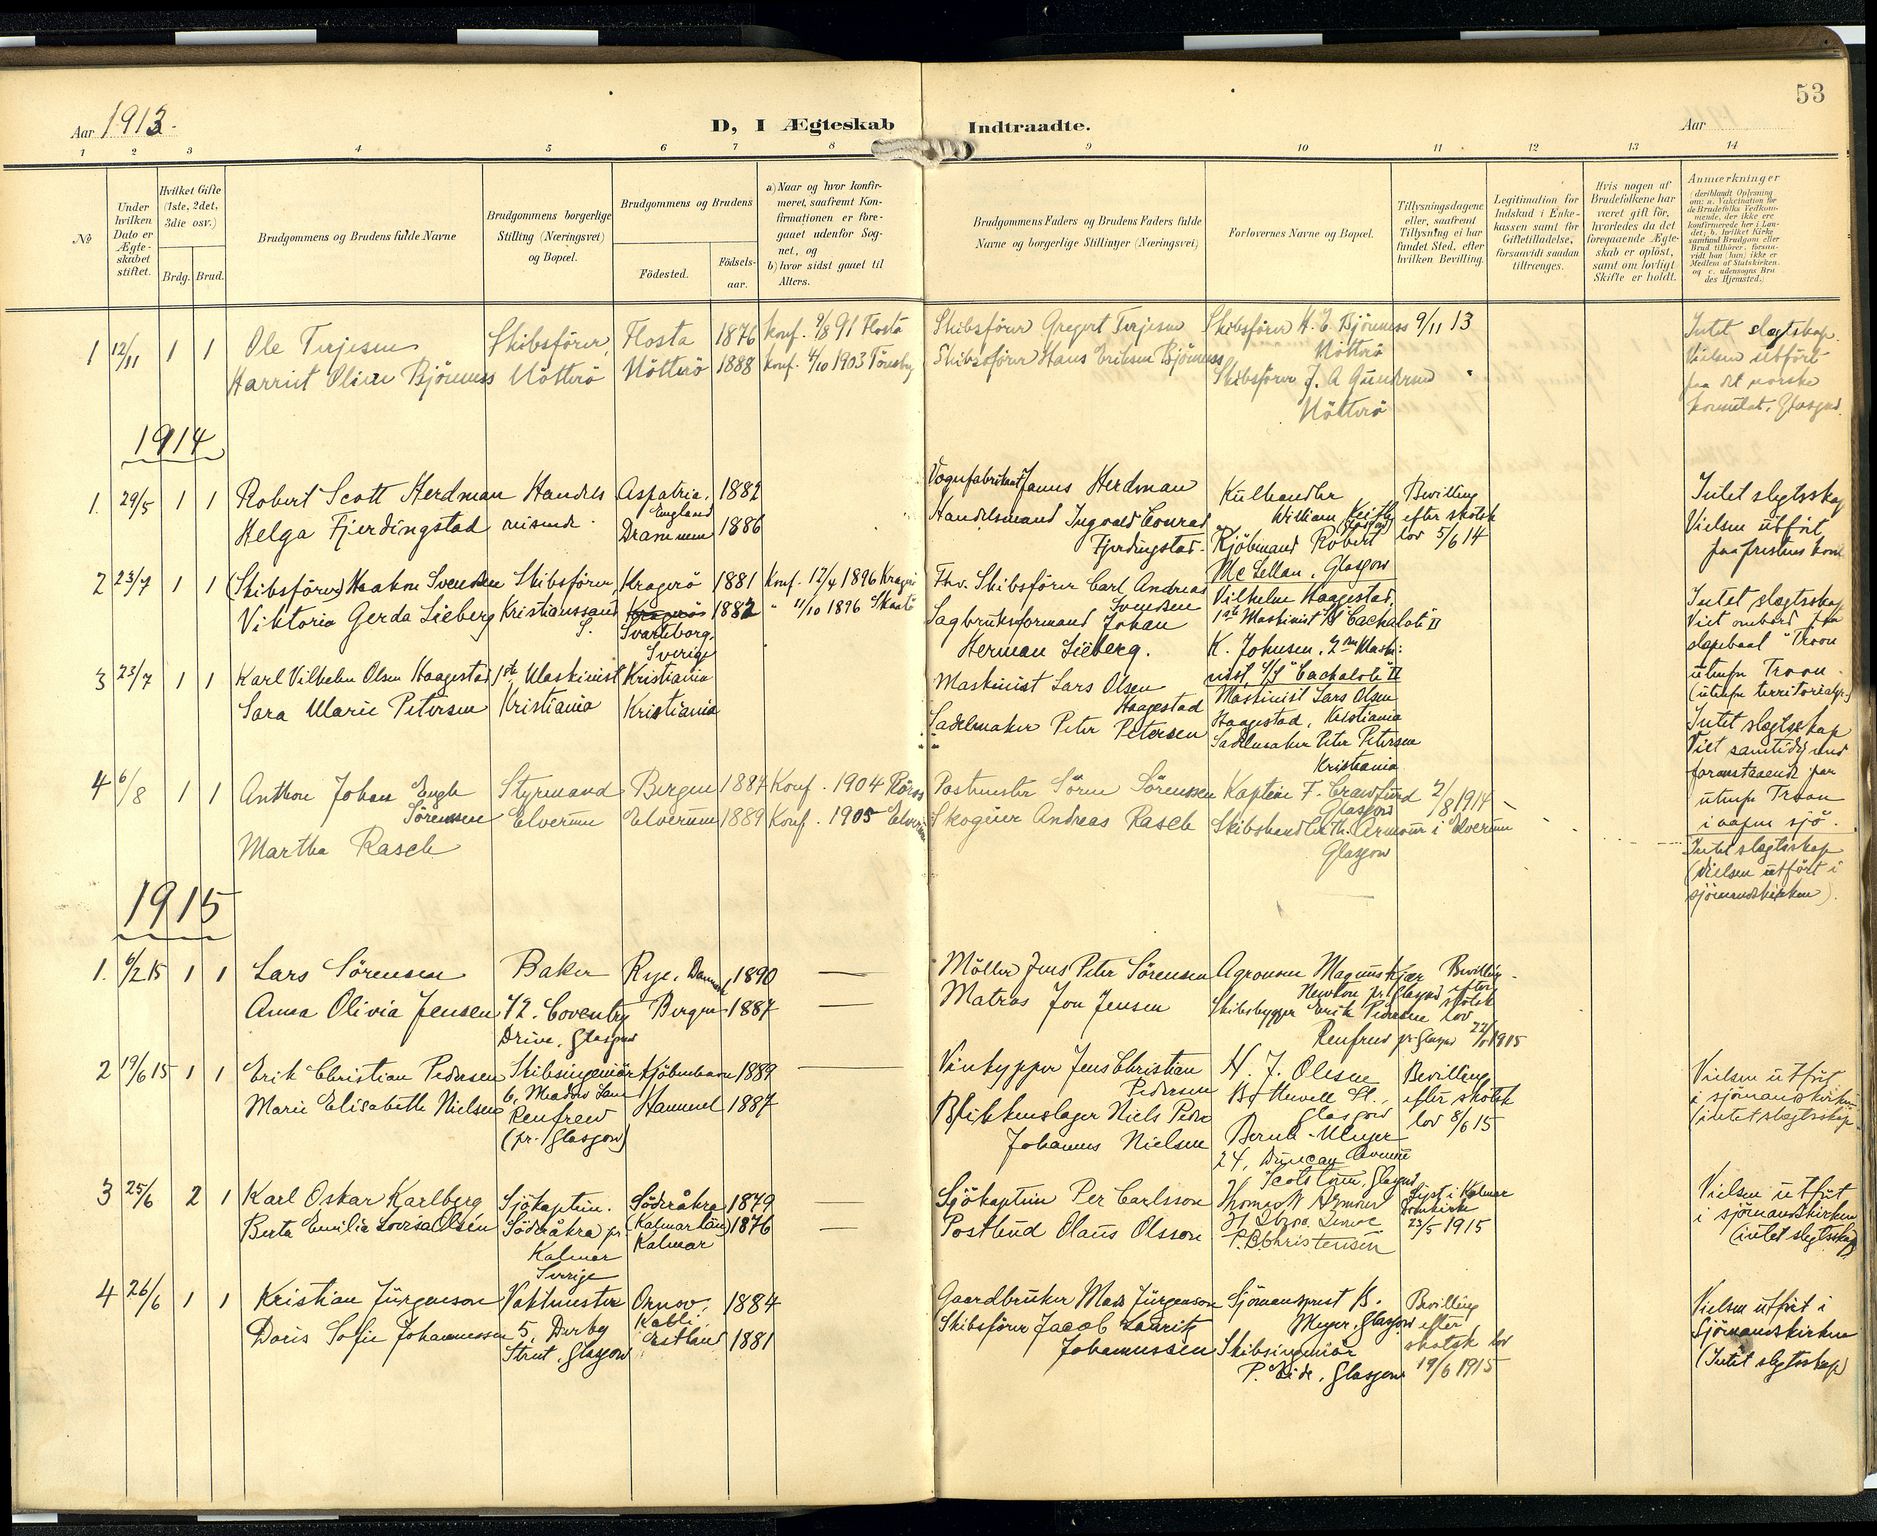 53
Aar 1913.
D, I Ægteskab Indtraadte.
Aar
1 2 3 4 5 6 7 8 9 10 11 12 13 14
No
Under hvilken Dato er Ægteskabet stiftet.
Hvilket Gifte (1ste, 2det, 3die osv.)
Brdg. Brud.
Brudgommens og Brudens fulde Navne
Brudgommens borgerlige Stilling (Næringsvei) og Bopæl.
Brudgommens og Brudens
Fødested.
Fødselsaar.
a) Naar og hvor konfirmeret, saafremt Konfirmationen er foregaaet udenfor Sognet, og
b) hvor sidst gaaet til Alters.
Brudgommens Faders og Brudens Faders fulde Navne og borgerlige Stillinger (Næringsvei)
Forlovernes Navne og Bopæl.
Tillysningsdagene eller, saafremt Tillysning ei har fundet Sted, efter hvilken Bevilling.
Legitimation for Indskud i Enkekassen samt for Giftetilladelse, forsaavidt saadan tiltrænges.
Hvis nogen af Brudefolkene har været gift før, hvorledes da det foregaaende Ægteskab er opløst, samt om lovligt Skifte er holdt.
Anmærkninger
1 12/11 1 1 Ole Terjesen Skibsfører, Flosta 1876 konf. 9/8 91 Flosta Skibsfører Gregert Terjesen Skibsfører H. E. Bjönness 9/11 13
Nötterö
Harriet Olive Bjönness Nötterö Nötterö 1888 konf. 4/10 1903 Tönsby Skibsförer Hans Eriksen Bjönness
Skibsförer J. A Gundersen
Nötterö
Intet slegtskap.
Vielsen utført
paa det norske
konsulat, Glasgow.
1914
1. 29/5 1 1 Robert Scott Herdman Handels Aspatria, England 1882 Vognfabrikant James Herdman Kulhandler William Keith, Glasgow
Helga Fjerdingstad reisende. Drammen 1886 Handelsmand Ingvald Conrad Fjerdingstad. Kjöbmand Robert McLellan, Glasgow
Bevilling
efter skotsk
lov 5/6 14
Intet slegtsskap
Vielsen utført
2 23/7 1 1 (Skibsförer) Haakon Svendsen Skibsförer, Kragerö 1881 Konf. 12/4 1896 Kragerö Fhv. Skibsförer Carl Andreas Svendsen Vilhelm Haagestad,
1ste Maskinist S/S "Cachalote II
Viktoria Gerda Lieberg Kristianssand S. Kragerö Svarteborg, Sverige 1882 " 11/10 1896 Skaatö Sagbruksformand Johan Herman Lieberg. K. Johnsen, 2nen Maski:
nist S/S "Cachalote" II
Intet slegtsskap
Viet ombord paa
slæpebaat "Troon
utenfor Troon.
(utenfor territorialgr.)
3 23/7 1 1 Karl Vilhelm Olsen Haagestad 1ste Maskinist Kristiania Maskinist Lars Olsen Haagestad Maskinist Lars Olsen
Haagestad, Kristiania
Sara Marie Petersen Kristiania Kristiania Sadelmaker Peter Petersen Sadelmaker Peter Petersen
Kristiania
Intet slegtsskap
Viet samtidig med
foranstaaende par
utenfor Troon
i aapen sjö.
4 6/8 1 1 Anthon Johan Engh Sörenssen Styrmand Bergen 1887 Konf. 1904 Röros Postmester Sören Sörenssen Kaptein F. Crawfurd Glasgow 2/8 1914
Martha Rasch Elverum Elverum 1889 Konf. 1905 Elverum Skogeier Andreas Rasch Skibshandler Th. Armour i Elverum
Glasgow
Intet slegtsskap
(vielsen utfört i
sjömandskirken).
1915
1. 6/2 15 1 1 Lars Sörensen Baker Rye, Danmark 1890 — Möller Jens Peter Sörensen Agronom Magnus Kjær
Newton pr. Glasgow
Anna Olivia Jensen 72. Coventry Drive, Glasgow Bergen 1887 — Matros Jon Jensen Skibsbygger Erik Pedersen
Renfrew pr. Glasgow
Bevilling
efter
skotsk
lov
22/1 1915
2 19/6 15 1 1 Erik Christian Pedersen Skibsingeniör Kjöbenhavn 1889 — Vinkypper Jens Christian Pedersen H. J. Olesen
Bothwell St., Glasgow
Marie Elisabeth Nielsen 6, Meadow Lane Renfrew (pr. Glasgow) Hammel 1887 Blikkenslager Niels Peder Johannes Nielsen Bernh. Meyer
24, Duncan Avenue
Scotstoun, Glasgow
Bevilling
efter skotsk
lov 8/6 15
Vielsen utfört
i sjömandskirken
(intet slegtsskap
3 25/6 2 1 Karl Oskar Karlberg Sjökaptein. Söderåkra 1879 — Sjökaptein Per Carlsson Thomas H Armour
Berta Emilia Lovisa Olsén Söderåkra pr. Kalmar Sverige (Kalmar län) Kalmar 1876 — Postbud Olaus Olsson P. B Christensen
Lyst i Kalmar
Domkirke
23/5 1915
Vielsen utfört
i sjömandskirken
(intet slegtsskap)
4 26/6 1 1 Kristian Jürgenson Vaktmester Ornov, Kabli, Estland 1884 Gaardbruker Mads Jürgenson Sjömansprest B. Meyer, Glasgow
Doris Sofie Johannessen 5, Derby Street, Glasgow 1881 Skibsförer Jacob Lauritz Johannessen Skibsingeniör
P. Eide, Glasgow
Bevilling
efter
skotsk lov
19/6 1915
Vielsen utfört i
Sjömandskirken
(Intet slegtsskap)